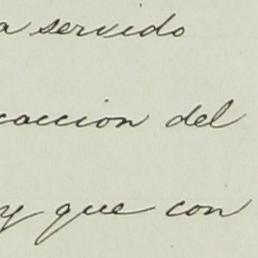 a servido
caccion del
y que con